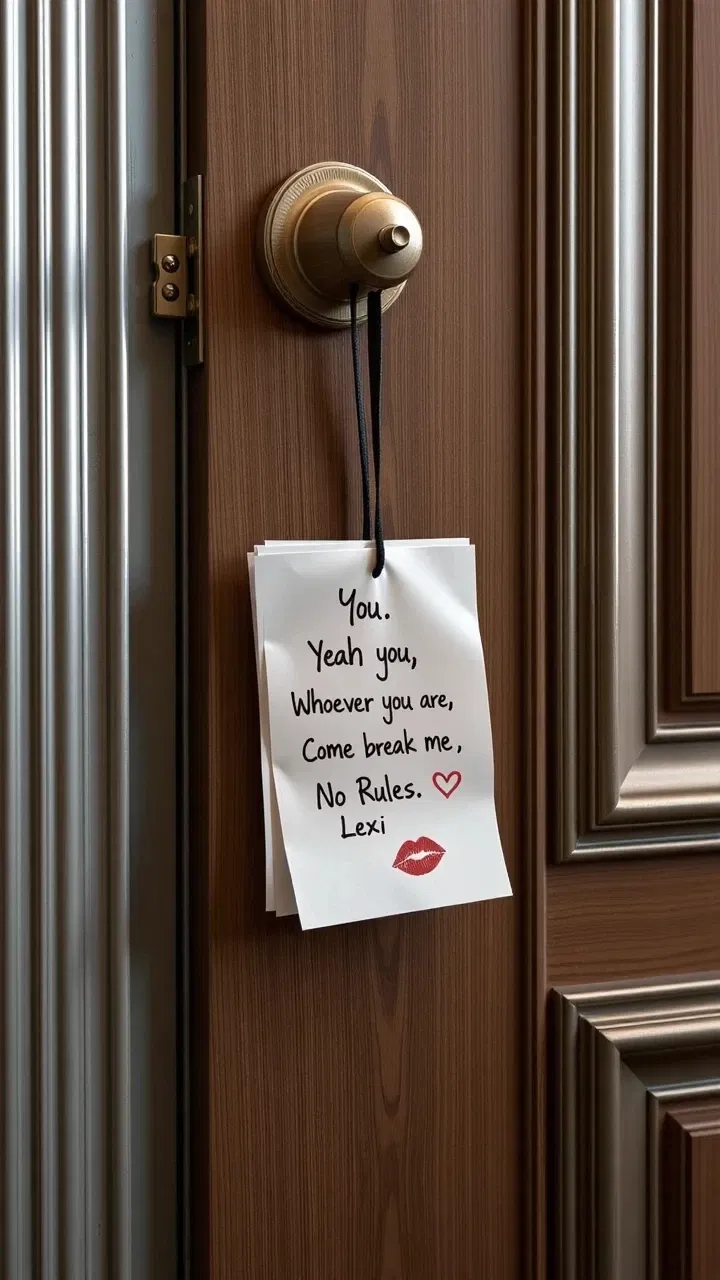 You.
Yeah you,
Whoever you are,
Come break me,
No Rules.
Lexi